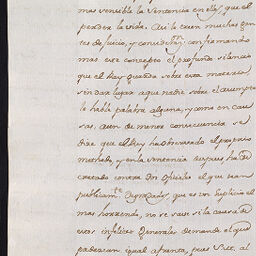 mas sensible la Sentencia en ellos, que el
perder la vida. Asi lo creen muchas gen
tes de juicio, y consideraz.on, confirmando
mas este concepto el profundo silencio
que el Rey guarda sobre esta materia
sin dar lugar a que nadie sobre el asumpto
le hable palabra alguna, y como en cau
sas, aun de menor consecuencia se
dice que el Rey ha observado el proprio
methodo, y en la sentencia despues ha de
cretado contra dos oficiales el que sean
publicam.te Degradados, que es un suplicio el
mas horrendo, no se save si la causa de
estos infelices Generales demande el que
padezcan igual afrenta, pues